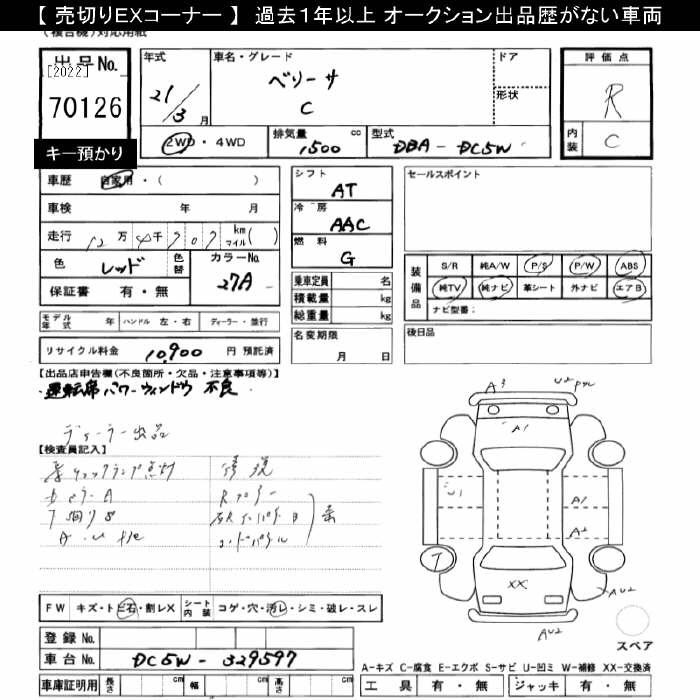 【 売切りEXコーナー 】 過去1年以上 オークション出品歴がない車両
(複合機)対応用紙
出品No.
[2022]
70126
キー預かり
年式
21/3月
車名・グレード
ベリーサ
C
ドア
形状
2WD・4WD
排気量
1500 cc
型式
DBA-DC5W
評価点
R
内装
C
車歴 自家用・( )
車検 年 月
走行 12万4千707 km マイル( )
色 レッド 色替
カラーNo. 27A
保証書 有・無
モデル年式 年 ハンドル 左・右 ディーラー・並行
リサイクル料金 10,900 円 預託済
シフト
AT
冷房
AAC
燃料
G
乗車定員 名
積載量 kg
総重量 kg
名変期限
月 日
セールスポイント
装備品
S/R 純A/W P/S P/W ABS
純TV 純ナビ 革シート 外ナビ エアB
ナビ型番:
後日品
【出品店申告欄(不良箇所・欠品・注意事項等)】
運転席パワーウィンドウ 不良
ディーラー出品
【検査員記入】
A3
U2
A1
U1
A1
A2
T
XX
AU2
AU2
スペア
FW キズ・トビ石・割レX シート内装 コゲ・穴・汚レ・シミ・破レ・スレ
登録No.
車台No. DC5W-329597
車庫証明用 長さ cm 幅 cm 高さ cm
A-キズ C-腐食 E-エクボ S-サビ U-凹ミ W-補修 XX-交換済
工具 有・無 ジャッキ 有・無